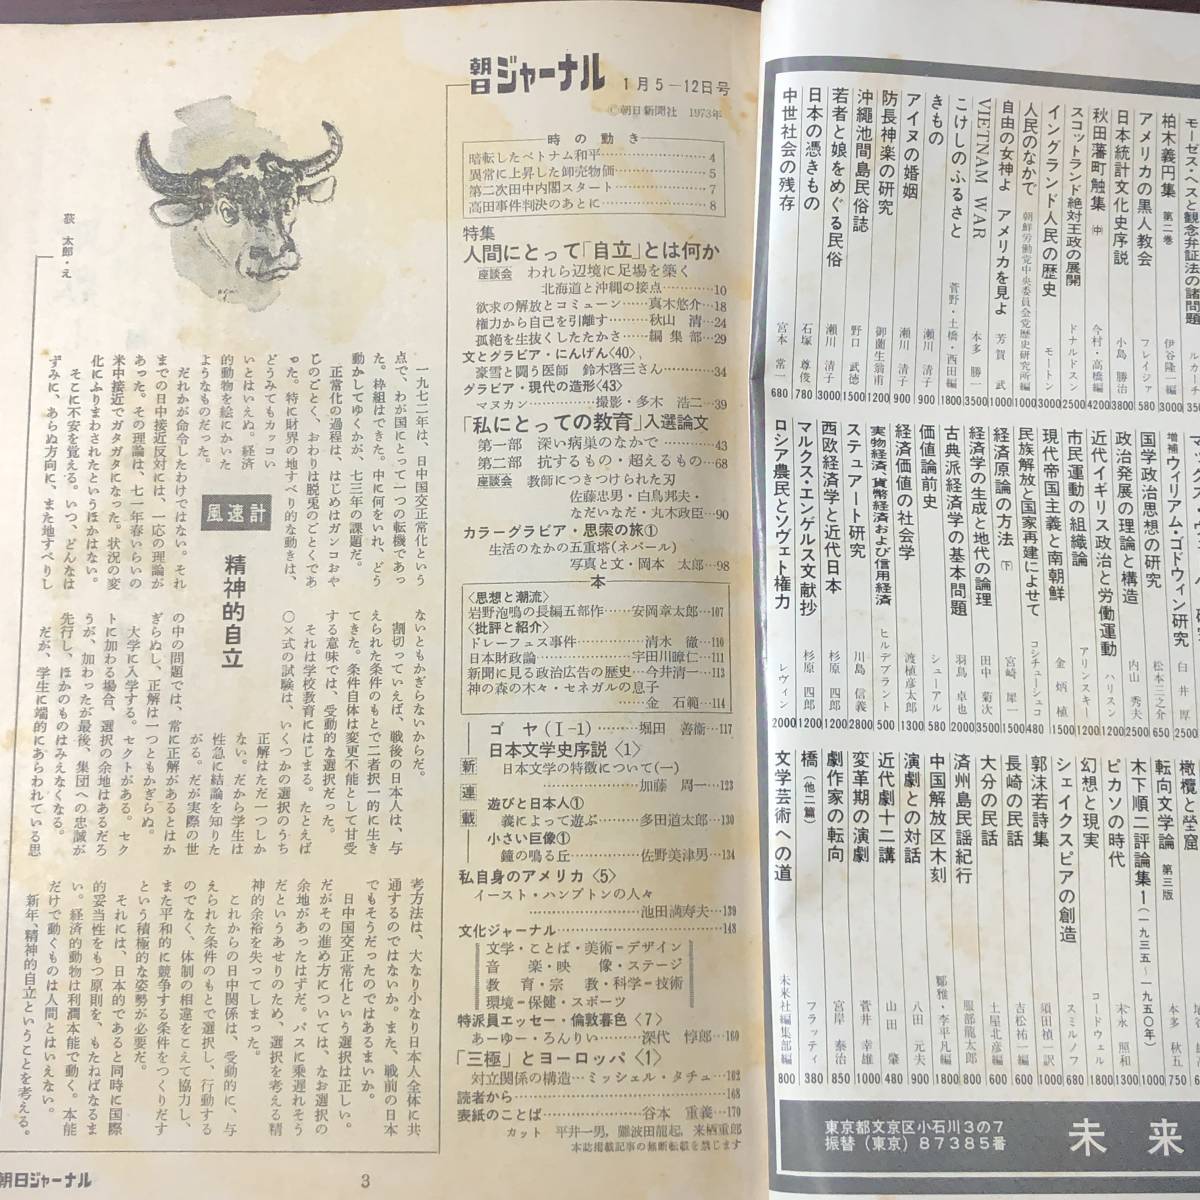 朝日ジャーナル 1月5-12日号
©朝日新聞社 1973年
時の動き
暗転したベトナム和平……4
異常に上昇した卸売物価……5
第二次田中内閣スタート……7
高田事件判決のあとに……8
特集
人間にとって「自立」とは何か
座談会 われら辺境に足場を築く
北海道と沖縄の接点……10
欲求の解放とコミューン……真木悠介…18
権力から自己を引離す……秋山 清…24
孤絶を生抜くしたたかさ……編集部…29
文とグラビア・にんげん〈40〉、
豪雪と闘う医師 鈴木啓三さん……34
グラビア・現代の造形〈43〉
マヌカン……撮影・多木 浩二…39
「私にとっての教育」入選論文
第一部 深い病巣のなかで……43
第二部 抗するもの・超えるもの…68
座談会 教師につきつけられた刃
佐藤忠男・白鳥邦夫・
なだいなだ・丸木政臣…90
カラーグラビア・思索の旅①
生活のなかの五重塔(ネパール)
写真と文・岡本 太郎…98
本
〈思想と潮流〉
岩野泡鳴の長編五部作……安岡章太郎…107
〈批評と紹介〉
ドレーフュス事件……清水 徹…110
日本財政論……宇田川璋仁…111
新聞に見る政治広告の歴史…今井清一…113
神の森の木々・セネガルの息子
……金 石範…114
新連載
ゴヤ(I-1)……堀田 善衞…117
日本文学史序説〈1〉
日本文学の特徴について(一)
……加藤 周一…123
遊びと日本人①
義によって遊ぶ……多田道太郎…130
小さい巨像①
鐘の鳴る丘……佐野美津男…134
私自身のアメリカ〈5〉
イースト・ハンプトンの人々
……池田満寿夫…139
文化ジャーナル……148
文学・ことば・美術=デザイン
音 楽・映 像・ステージ
教 育・宗 教・科学=技術
環境=保健・スポーツ
特派員エッセー・倫敦暮色〈7〉
あーゆー・ろんりい……深代 惇郎…160
「三極」とヨーロッパ〈1〉
対立関係の構造…ミッシェル・タチュ…162
読者から……168
表紙のことば……谷本 重義…170
カット 平井一男, 難波田龍起, 来栖重郎
本誌掲載記事の無断転載を禁じます
荻 太郎・え
風速計
精神的自立
一九七二年は、日中国交正常化という
点で、わが国にとって一つの転機であっ
た。枠組はできた。中に何をいれ、どう
動かしてゆくかが、七三年の課題だ。
正常化の過程は、はじめはガンコおや
じのごとく、おわりは脱兎のごとくであ
った。特に財界の地すべり的な動きは、
どうみてもカッコい
いとはいえぬ。経済
的動物を絵にかいた
ようなものだった。
だれかが命令したわけではない。それ
までの日中接近反対には、一応の理論が
あった。その理論は、七一年春いらいの
米中接近でガタガタになった。状況の変
化にふりまわされたというほかはない。
そこに不安を覚える。いつ、どんなは
ずみに、あらぬ方向に、また地すべりし
ないともかぎらないからだ。
割切っていえば、戦後の日本人は、与
えられた条件のもとで二者択一的に生き
てきた。条件自体は変更不能として甘受
する意味では、受動的な選択だった。
それは学校教育にはじまる。たとえば
〇×式の試験は、いくつかの選択のうち
正解はただ一つしか
ない。だから学生は
性急に結論を知りた
がる。だが実際の世
の中の問題では、常に正解があるとはか
ぎらぬし、正解は一つともかぎらぬ。
大学に入学する。セクトがある。セク
トに加わる場合、選択の余地はあるだろ
うが、加わったが最後、集団への忠誠が
先行し、ほかのものはみえなくなる。
だが、学生に端的にあらわれている思
考方法は、大なり小なり日本人全体に共
通するのではないか。また、戦前の日本
でもそうだったのではあるまいか。
日中国交正常化という選択は正しい。
だがその進め方については、なお選択の
余地があったはずだ。バスに乗遅れそう
だというあせりのため、選択を考える精
神的余裕を失ってしまった。
これからの日中関係は、受動的に、与
えられた条件のもとで選択し、行動する
のでなく、体制の相違をこえて協力し、
また平和的に競争する条件をつくりだす
という積極的な姿勢が必要だ。
それには、日本的であると同時に国際
的妥当性をもつ原則を、もたねばなるま
い。経済的動物は利潤本能で動く。本能
だけで動くものは人間とはいえない。
新年、精神的自立ということを考える。
朝日ジャーナル
3
モーゼス・ヘスと観念弁証法の諸問題 ルカーチ
柏木義円集 第二巻 伊谷隆一編 3000
アメリカの黒人教会 フレイジァ 580
日本統計文化史序説 小島 勝治 3800
秋田藩町触集 中 今村・高橋編 4200
スコットランド絶対王政の展開 ドナルドスン 2500
イングランド人民の歴史 モートン 3000
人民のなかで 朝鮮労働党中央委員会党歴史研究所編 1000
自由の女神よ アメリカを見よ 芳賀 武 1000
VIETNAM WAR 本多 勝一 3500
こけしのふるさと 菅野・土橋・西田編 1800
きもの 瀬川 清子 900
アイヌの婚姻 瀬川 清子 900
防長神楽の研究 御薗生翁甫 1200
沖縄池間島民俗誌 野口 武徳 1500
若者と娘をめぐる民俗 瀬川 清子 3000
日本の憑きもの 石塚 尊俊 780
中世社会の残存 宮本 常一 680
増補 ウィリアム・ゴドウィン研究 白井 厚 2500
国学政治思想の研究 松本三之介 650
政治発展の理論と構造 内山 秀夫
近代イギリス政治と労働運動 ハリスン 1200
市民運動の組織論 アリンスキー 1200
現代帝国主義と南朝鮮 金 炳植 1500
民族解放と国家再建によせて コシチューシュコ 480
経済原論の方法 下 宮崎 犀一 1500
経済学の生成と地代の論理 田中 菊次 3500
古典派経済学の基本問題 羽鳥 卓也 2000
価値論前史 シューアル 580
経済価値の社会学 渡植彦太郎 1300
実物経済、貨幣経済および信用経済 ヒルデブラント 500
ステュアート研究 川島 信義 2800
西欧経済学と近代日本 杉原 四郎 1200
マルクス・エンゲルス文献抄 杉原 四郎 1200
ロシア農民とソヴェト権力 レヴィン 2000
橄欖と塋窟
転向文学論 第三版 本多 秋五 750
木下順二評論集1(一九三五〜一九五〇年) 1000
ピカソの時代 末永 照和 1300
幻想と現実 コードウェル 1800
シェイクスピアの創造 スミルノフ 680
郭沫若詩集 須田禎一訳 1000
長崎の民話 吉松祐一編 600
大分の民話 土屋北彦編 600
済州島民謡紀行 服部龍太郎 800
中国解放区木刻 鄒雅・李平凡編 1800
演劇との対話 八田 元夫 900
近代劇十二講 山田 肇 480
変革期の演劇 菅井 幸雄 1000
劇作家の転向 宮岸 泰治 850
橋(他二篇) フラッティ 380
文学芸術への道 未来社編集部編 800
東京都文京区小石川3の7
振替(東京)87385番
未来